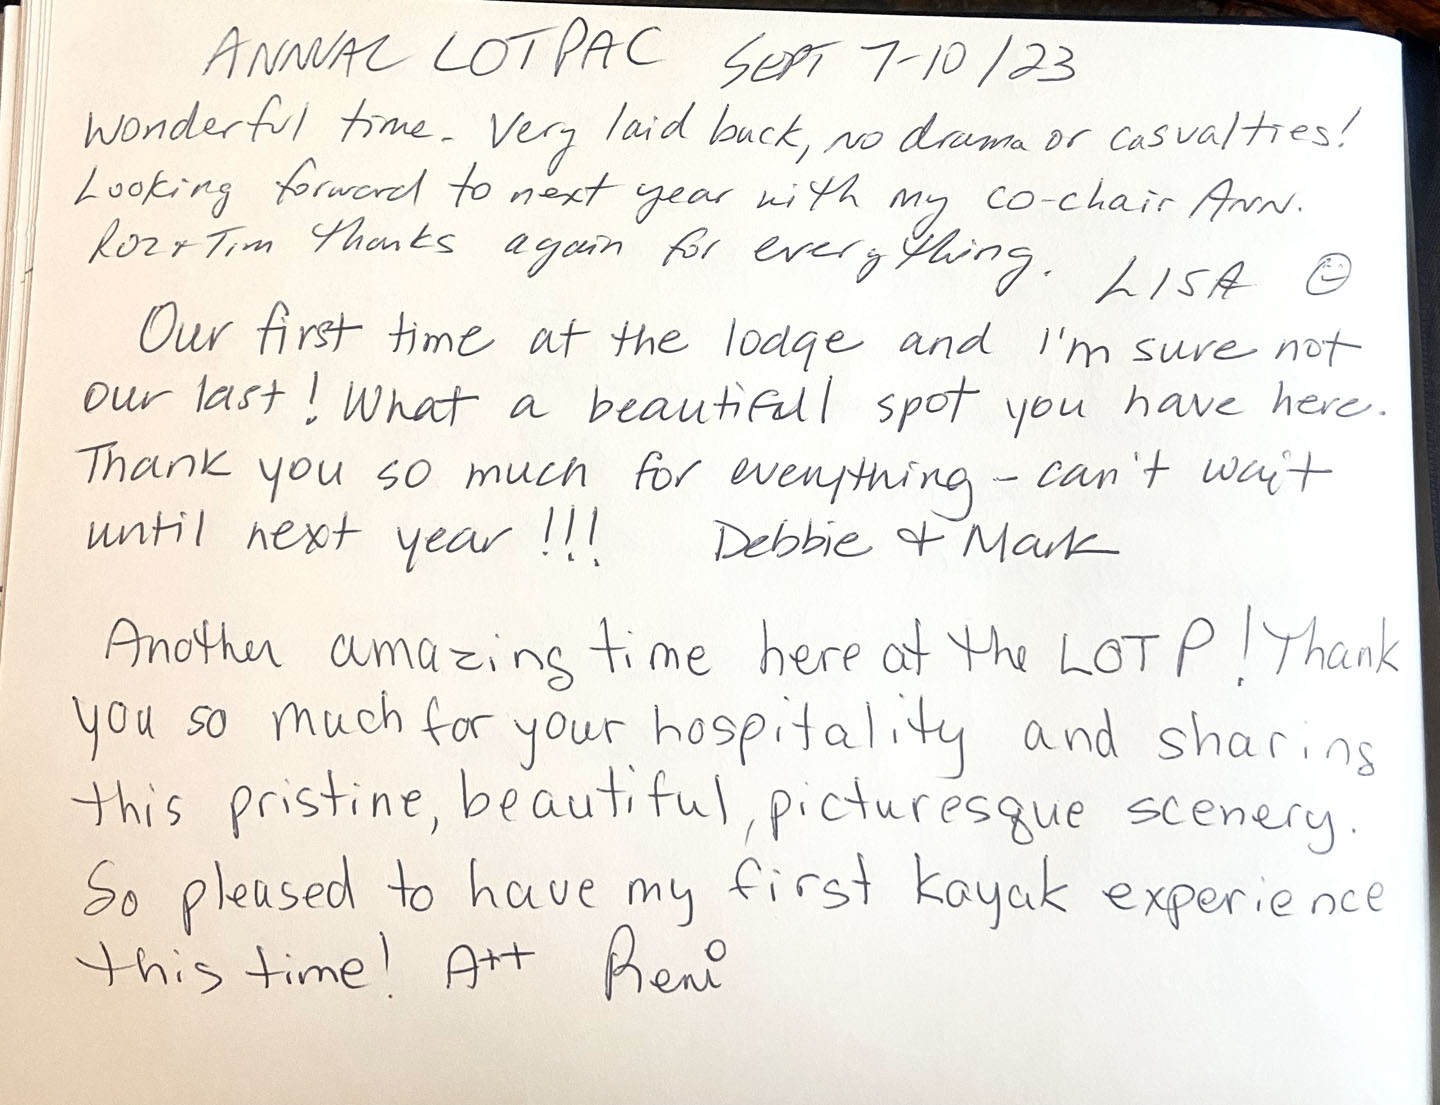 ANNUAL LOTPAC SEPT 7-10/23
Wonderful time. Very laid back, no drama or casualties!
Looking forward to next year with my co-chair Ann.
Roz + Tim thanks again for everything. LISA ☺
Our first time at the lodge and I'm sure not
our last! What a beautiful spot you have here.
Thank you so much for everything - can't wait
until next year!!! Debbie + Mark
Another amazing time here at the LOTP! Thank
you so much for your hospitality and sharing
this pristine, beautiful, picturesque scenery.
So pleased to have my first kayak experience
this time! A++ Reni